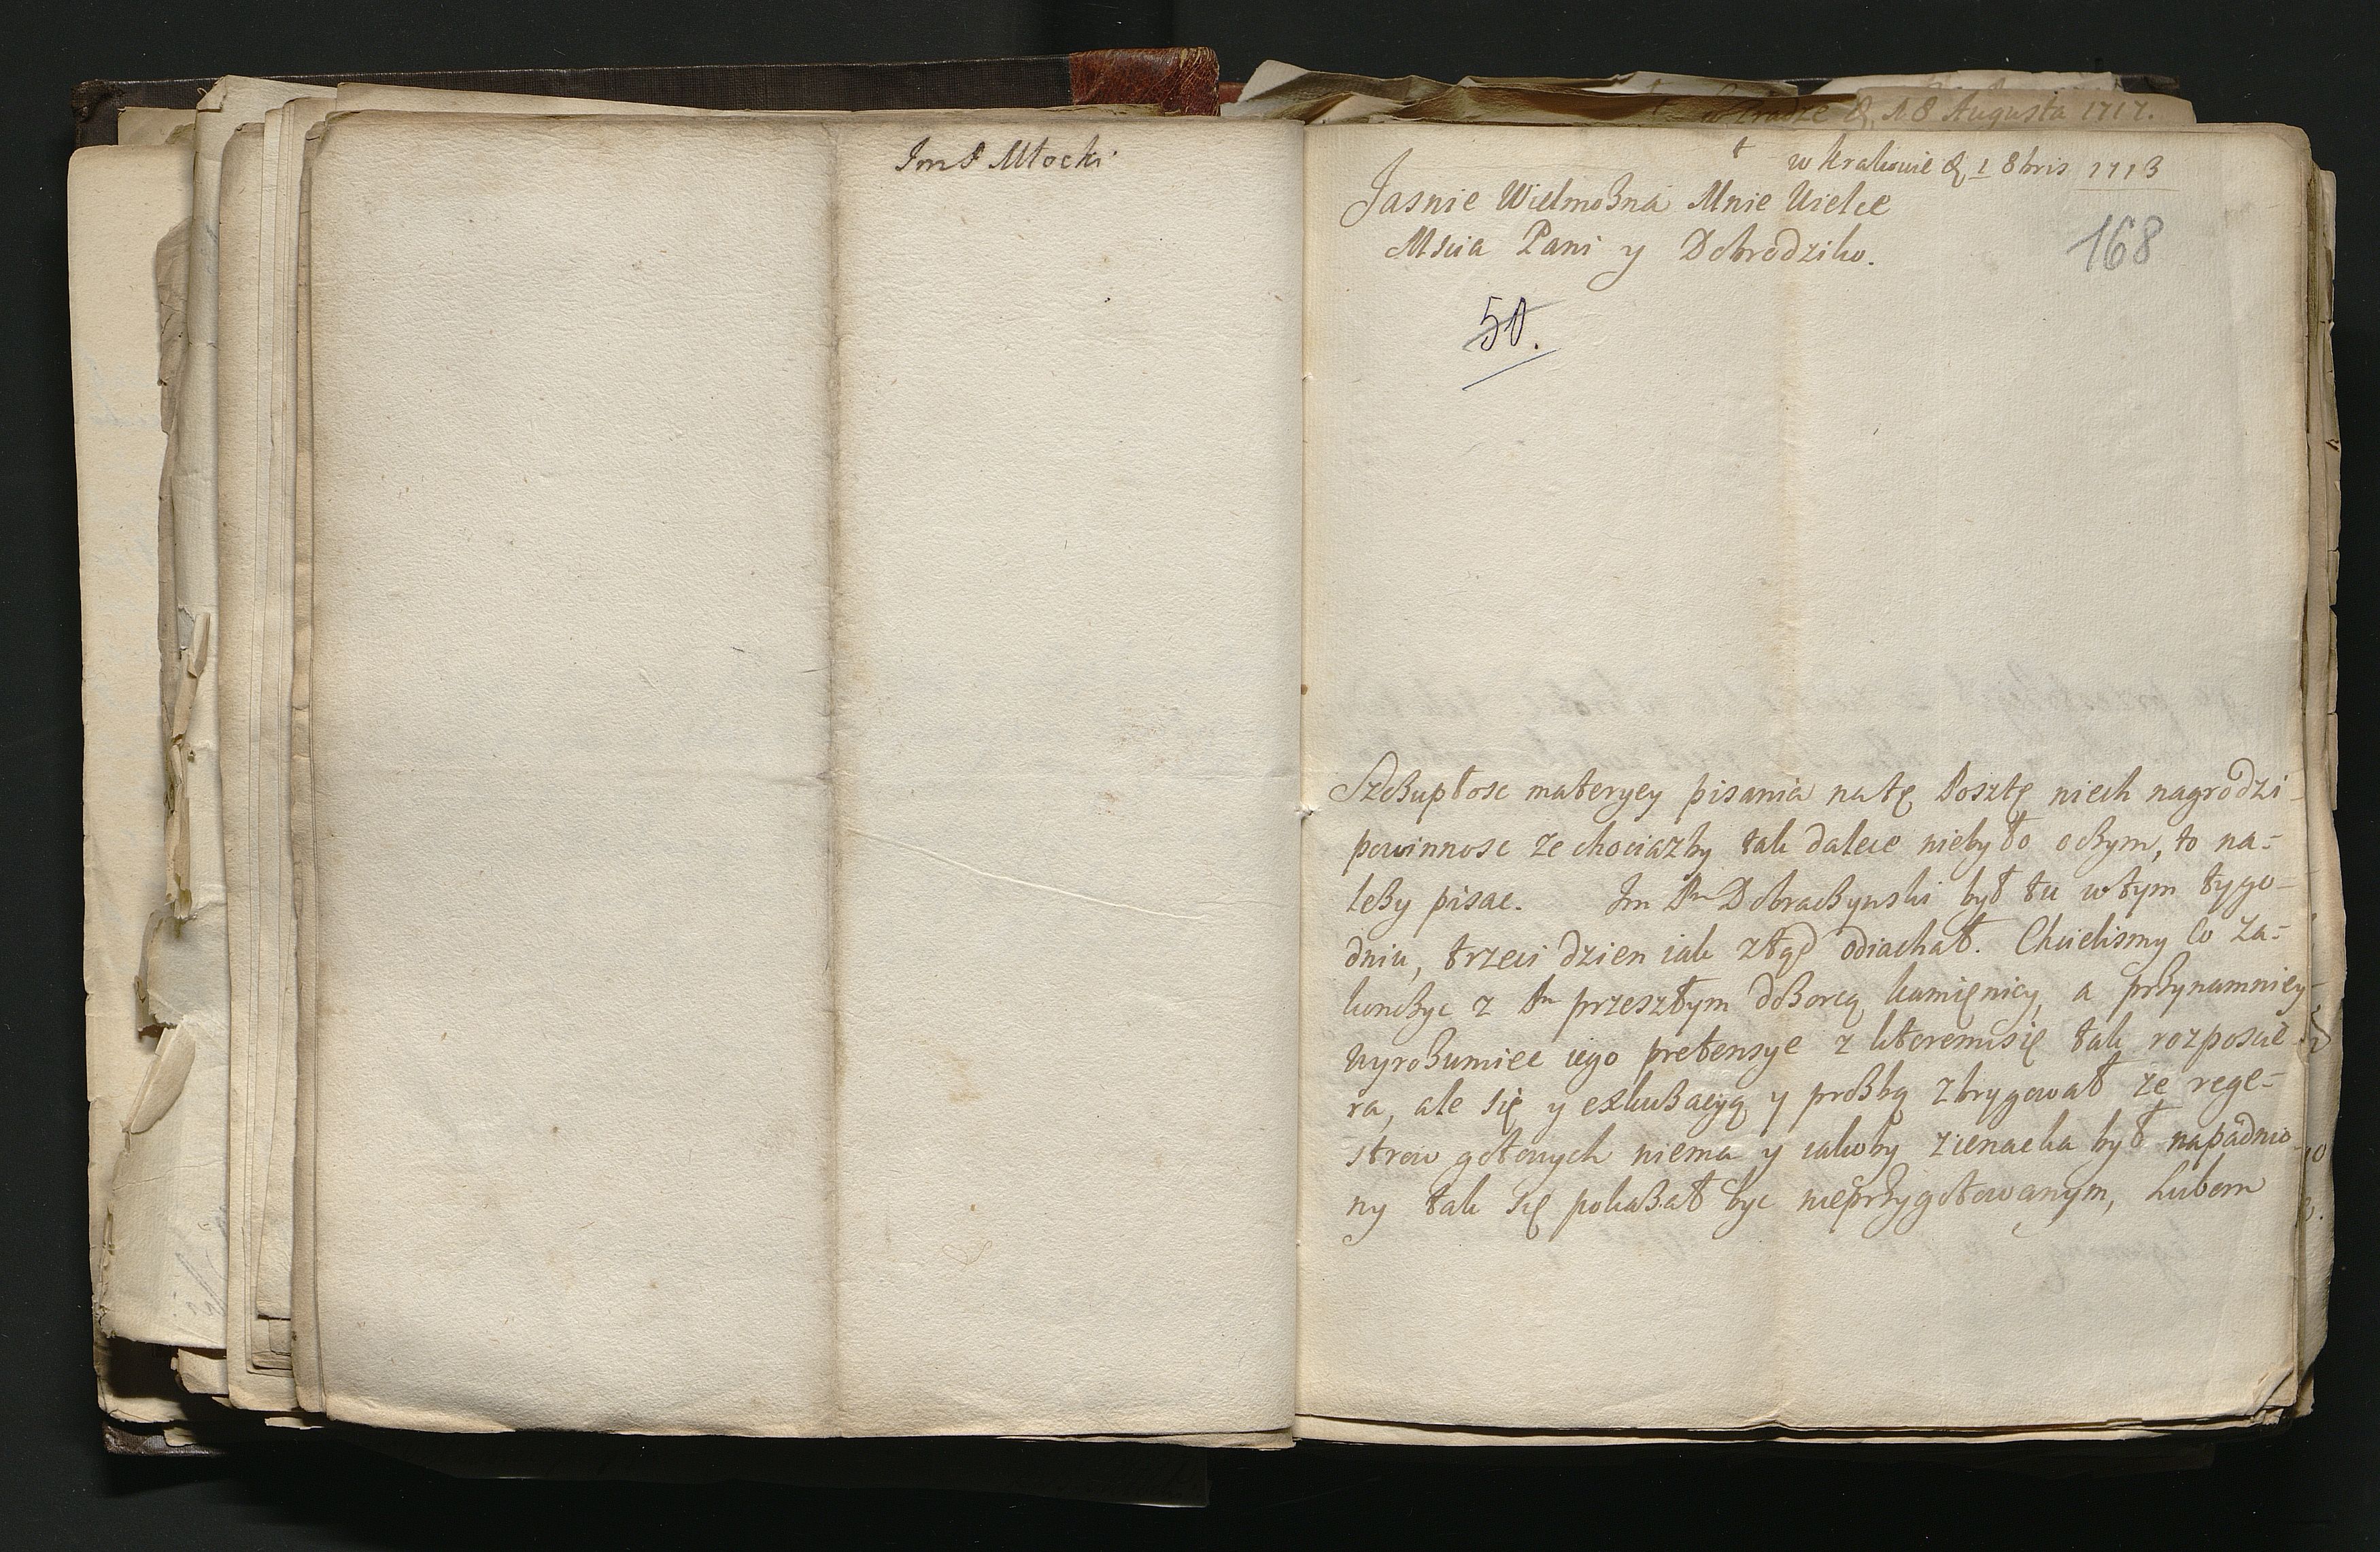 Im P Młocki
w Kradze D. 18 Augusta 1717.
w Krakowie D 1 8bris 1713
Jasnie Wielmożna Mnie Wielce
Mscia Pani y Dobrodziko.
168
50.
Szczupłosc materyey pisania natę Posztę niech nagrodzi
powinnosc ze chociazby tak dalece niebyło oczym, to na-
lezy pisac. Im Pn Dobraczynski był tu wtym tygo-
dniu, trzeci dzien iak ztąd odiachał. Chcielismy co za-
konczyc z Pn przeszłym dozorcą kamięnicy, a przynamniey
wyrozumiec iego pretensye z ktoremisię tak rozposcie
ra, ale się y exkuzacyą y prozbą zbrygował ze rege-
strow gotowych niema y iakoby zienacka był napadnio
ny tak się pokazał byc nieprzygotowanym, Lubom